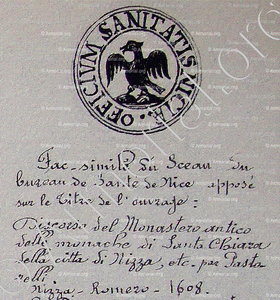 OFFICIVM SANITATIS NICIÆ.
Fac-simile du Sceau du
bureau de Santé de Nice apposé
sur le titre de l'ouvrage:
Discorso del Monastero antico
delle monache di Santa Chiara
della città di Nizza, etc. per Pasto
relli
Nizza - Romero - 1608.